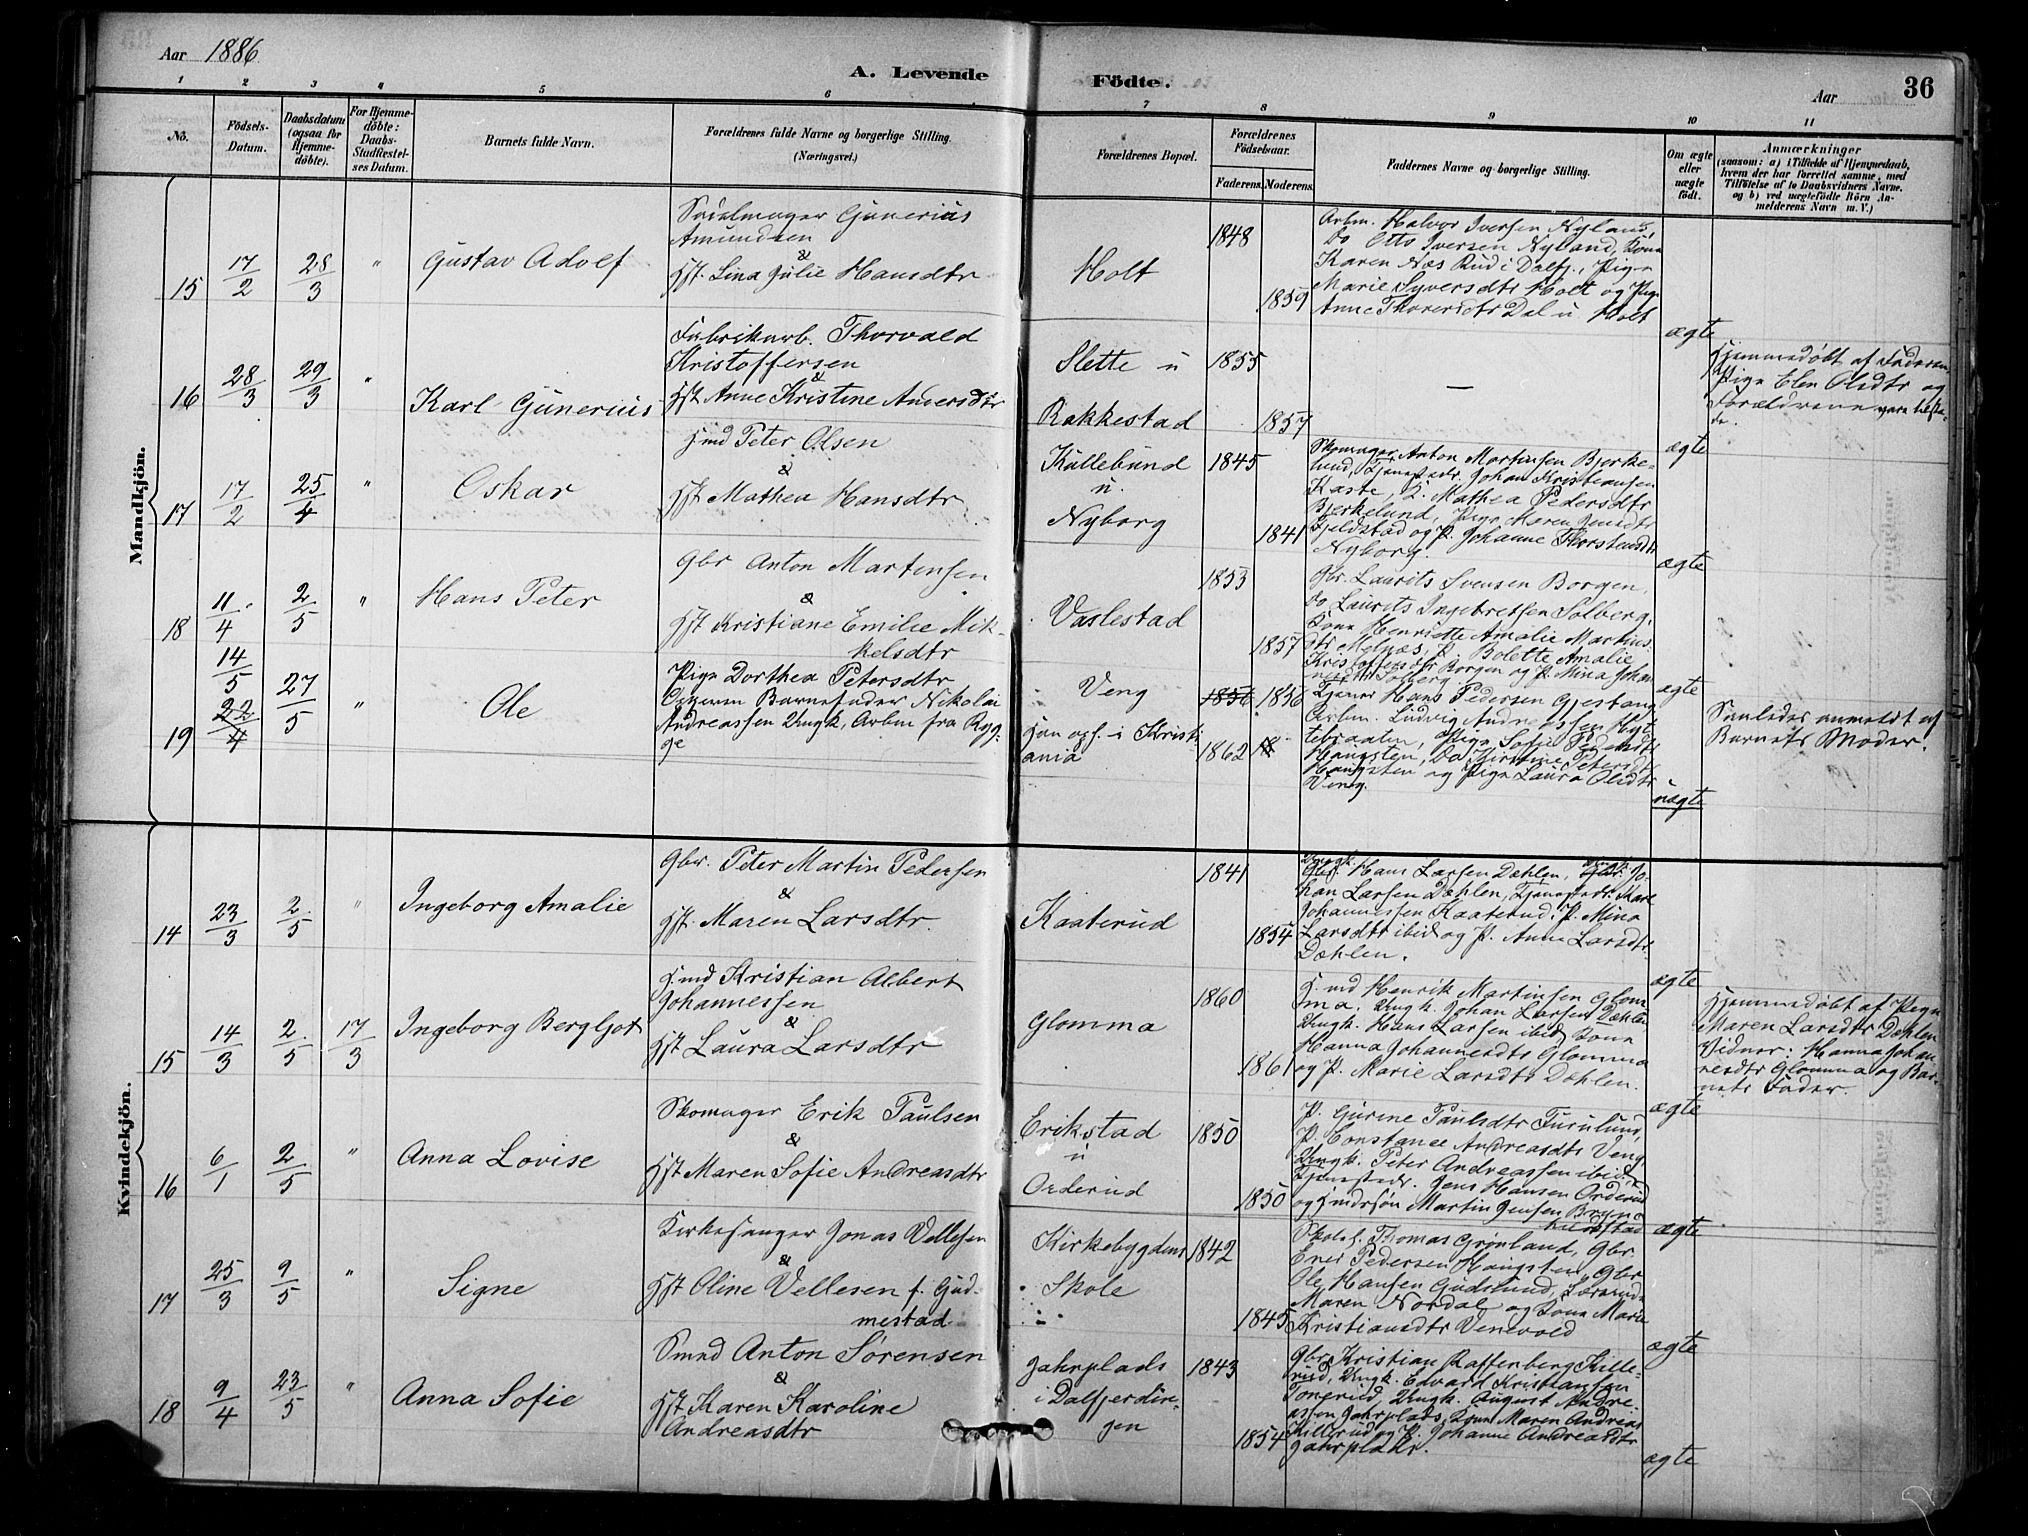 Aar 1886
A. Levende Födte.
Aar
36
1 2 3 4 5 6 7 8 9 10 11
No.
Födsels-Datum.
Daabsdatum (ogsaa for Hjemme-döbte).
For Hjemme-döbte: Daabs-Stadfæstel-ses Datum.
Barnets fulde Navn.
Forældrenes fulde Navne og borgerlige Stilling.
(Næringsvei.)
Forældrenes Bopæl.
Forældrenes Födselsaar.
Faderens. Moderens.
Faddernes Navne og borgerlige Stilling.
Om ægte eller uægte födt.
Anmærkninger
(saasom: a) i Tilfælde af Hjemmedaab,
hvem der har forrettet samme, med
Tilföielse af to Daabsvidners Navne.
og b) ved uægtefödte Börn An-
melderens Navn m. V.)
Mandkjön.
15 17/2 28/3 " Gustav Adolf
Sadelmager Gunerius
Amundsen
&
Hst. Lina Julie Hansdtr
Holt
1848
1859
Arbm. Halvor Iversen Nyland,
Do Otto Iversen Nyland, Kone
Karen Næs Rud i Dalfj., Pigen
Marie Syversdtr Holt og Pige
Anne Thoresdtr Dal u Holt
ægte
16 28/3 29/3 " Karl Gunerius
Fabrikarb. Thorvald
Kristoffersen
&
Hst Anne Kristine Andersdtr
Slette u
Rakkestad
1855
1857
—
ægte
Hjemmedøbt af Faderen,
Pige Elen Olsdtr og
Forældrene vare tilsta-
de.
17 17/2 25/4 " Oskar
Hmd Peter Olsen
&
Hst Mathea Hansdtr
Kullebund
u.
Nyborg
1845
1841
Skomager Anton Martinsen Bjerke-
lund, Tjenestedr. Johan Kristiansen
Kaste, K. Mathea Pedersdtr
Bjerkelund, Pige Maren Jensdtr
Kjeldstad og P. Johanne Thorstensdtr
Nyborg.
ægte
18 11/4 2/5 " Hans Peter
Gbr Anton Martinsen
&
Hst Kristiane Emilie Mik-
kelsdtr
Vaslestad
1853
1857
Gbr. Laurits Svensen Borgen,
Do Laurits Ingebretsen Solberg,
Kone Henriette Amalie Martins
dtr Melnæs, P. Bolette Amalie
Kristoffersdtr Borgen og P. Mina Johan
nesdtr Solberg.
ægte
19 14/5 22/4 27/5 " Ole
Pige Dorthea Petersdtr
Opgiven Barnefader Nikolai
Andreassen Ungk, Arbm fra Ryg-
ge
Veng
Han oph. i Kristi
ania
1856 1856
1862 18
Tjener Hans Pedersen Gjestang
Arbm. Ludvig Andreassen Nyt
tebraaten, Pige Sofie Pedersdtr
Haugsten, Do Kirstine Petersdtr
Haugsten og Pige Laura Olsdtr
Veng.
uægte
Saaledes anmeldt af
Barnets Moder.
Kvindekjön.
14 23/3 2/5 " Ingeborg Amalie
Gbr. Peter Martin Pedersen
&
Hst. Maren Larsdtr.
Kaaterud
1841
1854
Ungk. Hans Larsen Dæhlen, Jo-
han Larsen Dæhlen, Tjenestedr. Karl
Johannessen Kaaterud, P. Mina
Larsdtr ibid og P. Anne Larsdtr
Dæhlen.
ægte
15 14/3 2/5 17/3 Ingeborg Bergljot
Hmd Kristian Albert
Johannessen
&
Hst Laura Larsdtr
Glomma
1860
1861
Hmd Henrik Martinsen Glom
ma, Ungk. Johan Larsen Dæhlen
Ungk. Hans Larsen ibid, Kone
Hanna Johannesdtr Glomma
og P. Marie Larsdtr Dæhlen.
ægte
Hjemmedøbt af Pigen
Maren Larsdtr Dæhlen
Vidner: Hanna Johan
nesdtr Glomma og Bar-
nets Fader.
16 6/1 2/5 " Anna Lovise
Skomager Erik Paulsen
&
Hst Maren Sofie Andreasdtr
Erikstad
u
Orderud
1850
1850
P. Gurine Paulsdtr Furulund,
P. Constance Andreasdtr Veng,
Ungk. Peter Andreassen ibid,
Tjenestedr. Jens Hansen Orderud
og Gmdssøn Martin Jensen Bryn-
hildstad
ægte
17 25/3 9/5 " Signe
Kirkesanger Jonas Vellesen
&
Hst Oline Vellesen f. Gud-
mestad
Kirkebygdens
Skole
1842
1845
Skolel. Thomas Grønland, Gbr
Ener Pedersen Haugsten, Gbr
Ole Hansen Gudslund, Lærerinde
Maren Nordal og Kone Marie
Kristiansdtr Venevold
ægte
18 9/4 23/5 " Anna Sofie
Smed Anton Sørensen
&
Hst Karen Karoline
Andreasdtr
Jahrplads
i Dalfjerdin-
gen
1843
1854
Gbr Kristian Raffenberg Kille-
rud, Ungk. Edvard Kristiansen
Tonerud Ungk. August Andre-
assen Jahrplads, Kone Maren Andreas
Killerud og P. Johanne Andreasdtr
Jahrplads.
ægte